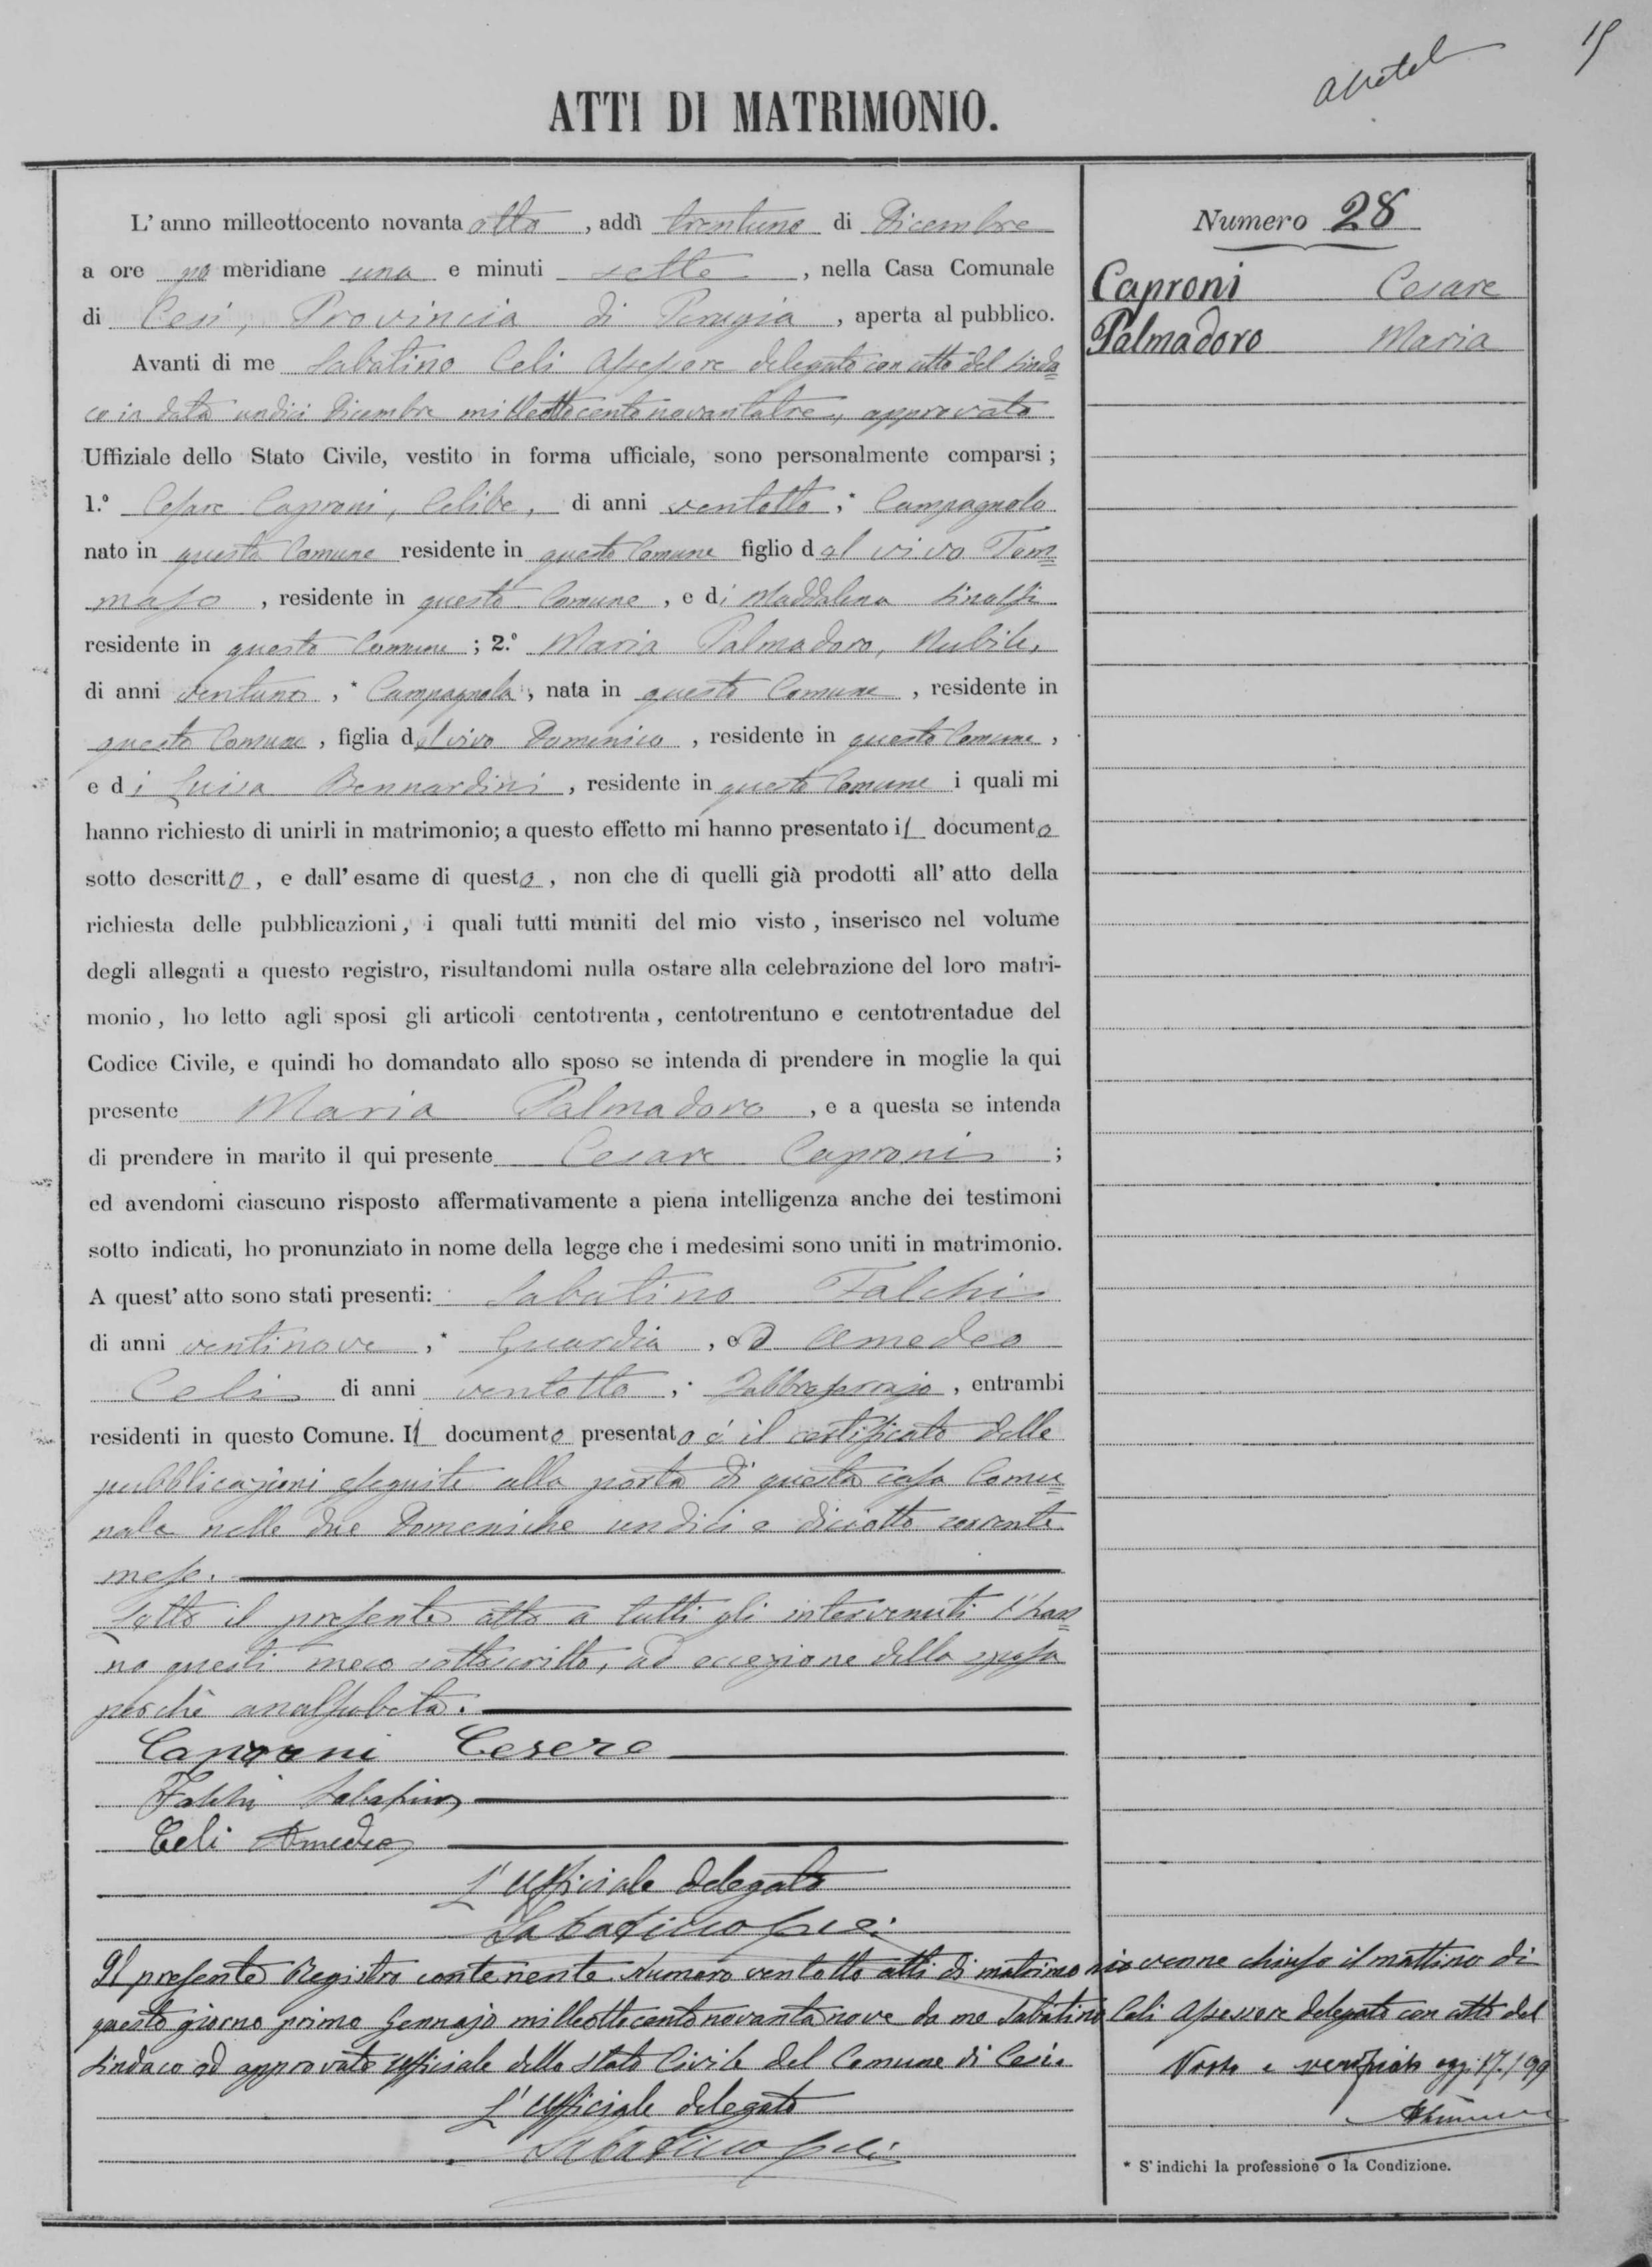 15
ATTI DI MATRIMONIO.
Numero 28
Caproni Cesare
Palmadoro Maria
L'anno milleottocento novanta otto, addì trentuno di Dicembre
a ore po meridiane una e minuti sette, nella Casa Comunale
di Cesi, Provincia di Perugia, aperta al pubblico.
Avanti di me Sabatino Celi Assessore delegato con atto del Sinda=
co in data undici Dicembre milleottocentonovantatre, approvato
Uffiziale dello Stato Civile, vestito in forma ufficiale, sono personalmente comparsi;
1.° Cesare Caproni, Celibe, di anni ventotto, * Campagnolo
nato in questo Comune residente in questo Comune figlio del vivo Tom=
maso, residente in questo Comune, e di Maddalena Sinolfi
residente in questo Comune; 2.° Maria Palmadoro, Nubile,
di anni ventuno, * Campagnola, nata in questo Comune, residente in
questo Comune, figlia del vivo Domenico, residente in questo Comune,
e di Luisa Bennardini, residente in questo Comune i quali mi
hanno richiesto di unirli in matrimonio; a questo effetto mi hanno presentato il documento
sotto descritto, e dall'esame di questo, non che di quelli già prodotti all'atto della
richiesta delle pubblicazioni, i quali tutti muniti del mio visto, inserisco nel volume
degli allegati a questo registro, risultandomi nulla ostare alla celebrazione del loro matri-
monio, ho letto agli sposi gli articoli centotrenta, centotrentuno e centotrentadue del
Codice Civile, e quindi ho domandato allo sposo se intenda di prendere in moglie la qui
presente Maria Palmadoro, e a questa se intenda
di prendere in marito il qui presente Cesare Caproni;
ed avendomi ciascuno risposto affermativamente a piena intelligenza anche dei testimoni
sotto indicati, ho pronunziato in nome della legge che i medesimi sono uniti in matrimonio.
A quest'atto sono stati presenti: Sabatino Falchi
di anni ventinove, * Guardia, ed Amedeo
Celi di anni ventotto, * Fabbroferrajo, entrambi
residenti in questo Comune. Il documento presentato é il certificato delle
pubblicazioni eseguite alla porta di questa casa Comu=
nale nelle due Domeniche undici e diciotto corrente
mese.
Letto il presente atto a tutti gli intervenuti l'han=
no questi meco sottoscritto, ad eccezione della sposa
perchè analfabeta.
Caproni Cesere
Falchi Sabatino
Celi Amedeo
L'Ufficiale delegato
Sabatino Celi
Il presente Registro contenente Numero ventotto atti di matrimonio venne chiuso il mattino di
questo giorno primo Gennajo milleottocentonovantanove da me Sabatino Celi Assessore delegato con atto del
Sindaco ed approvato Ufficiale dello Stato Civile del Comune di Cesi.
L'Ufficiale delegato
Sabatino Celi
Visto e verificato oggi
* S'indichi la professione o la Condizione.